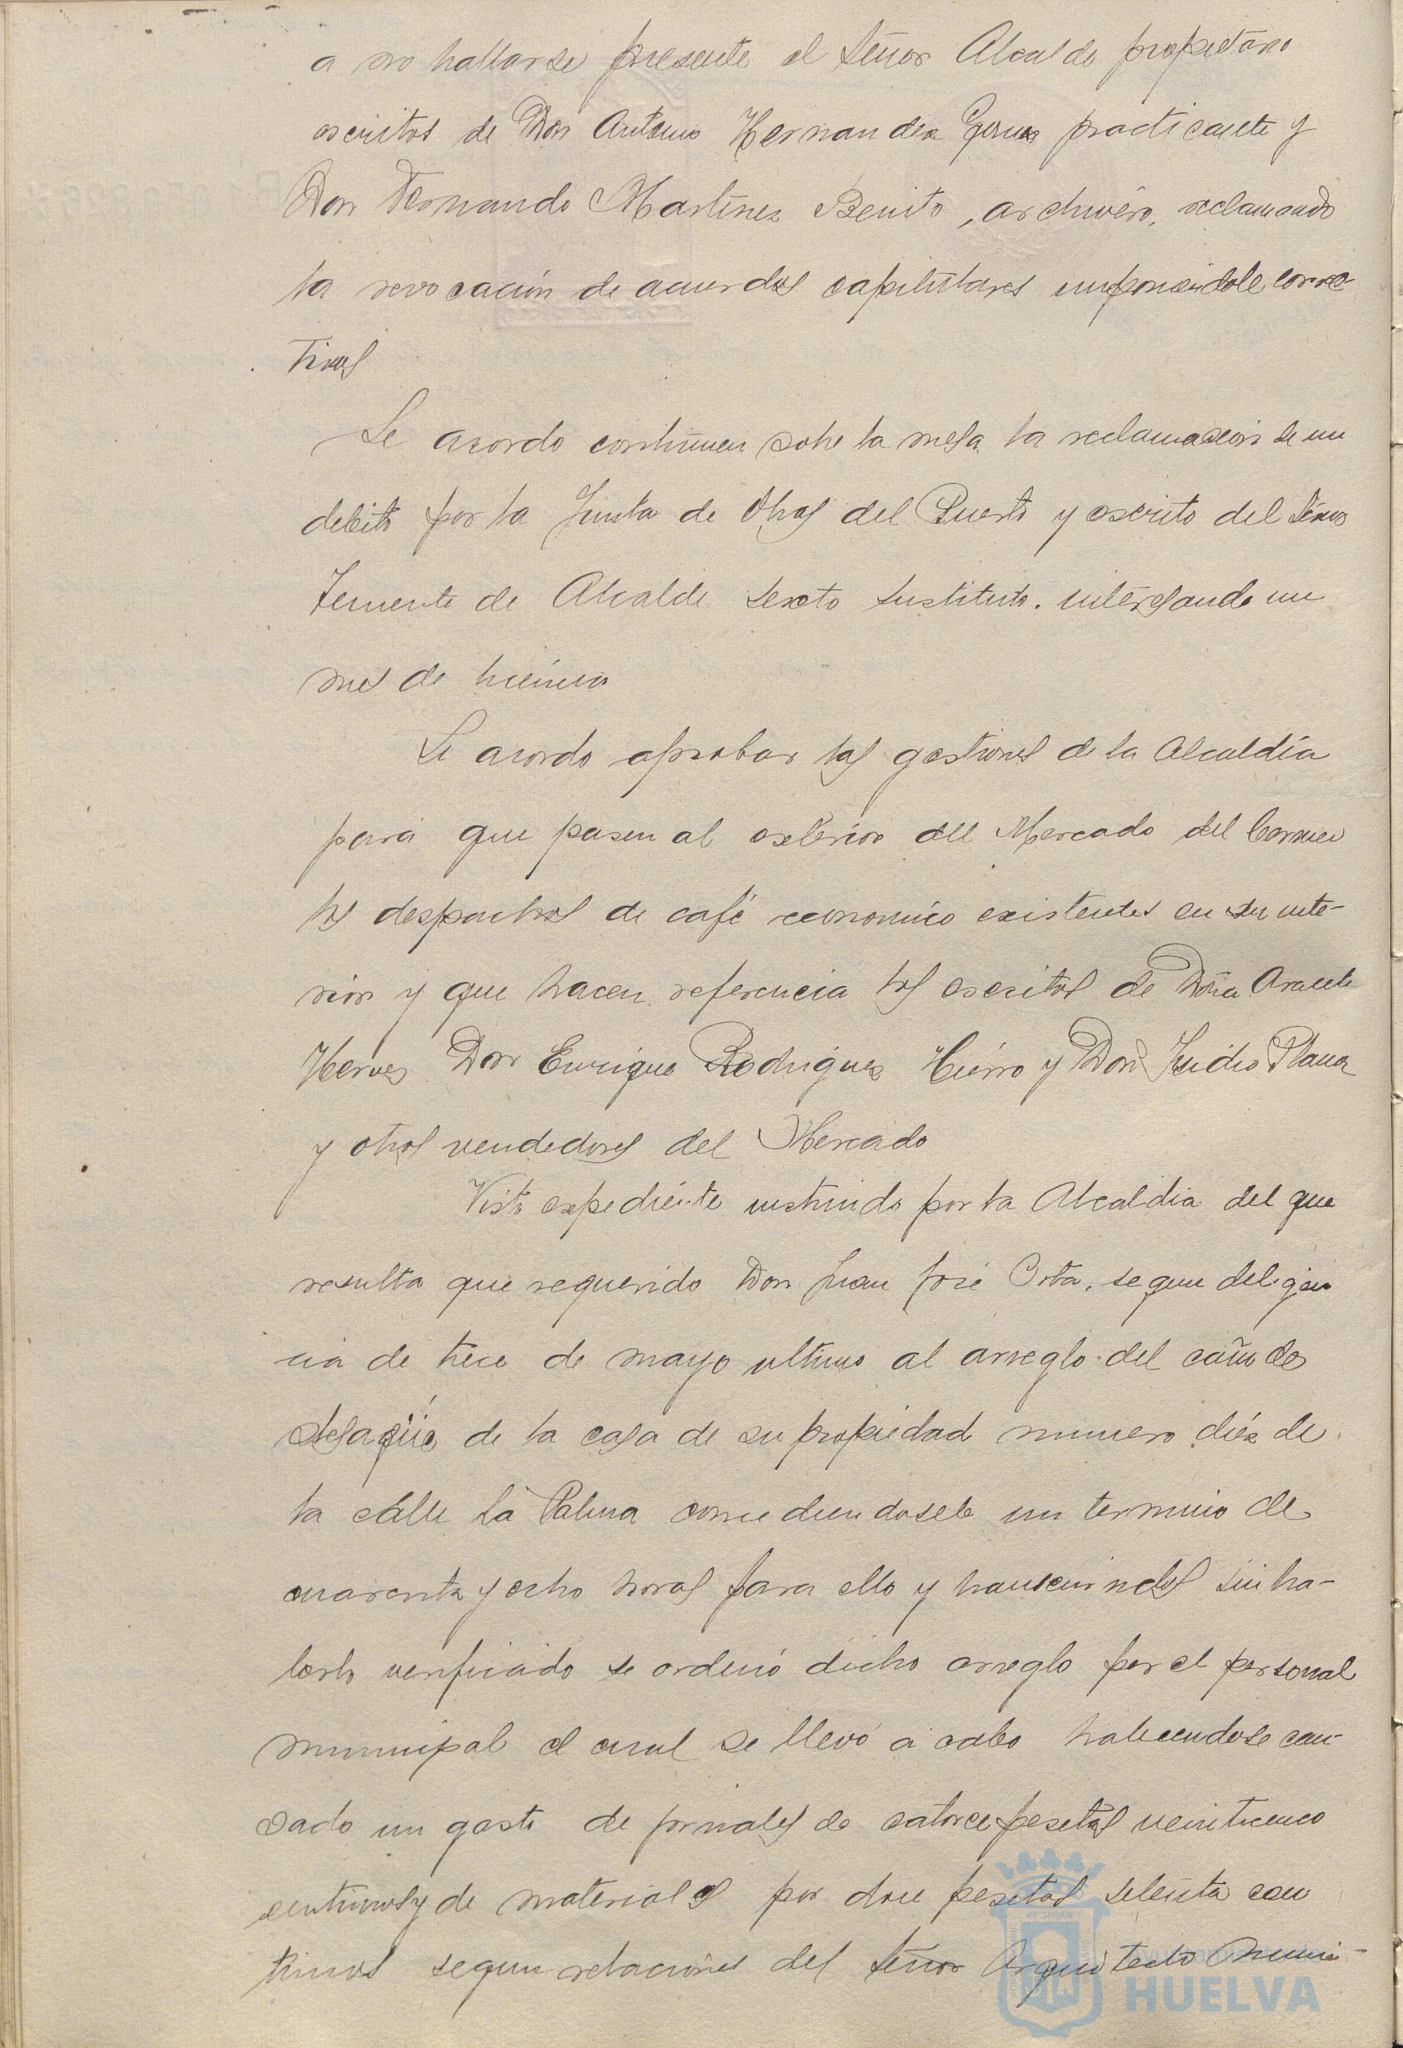 a no hallarse presente el Señor Alcalde propietario
escritos de Don Antonio Hernandez practicante y
Don Fernando Martinez Benito, archivero, reclamando
la revocación de acuerdos capitulares imponiendole correc-
tivos
Se acordo continuen sobre la mesa la reclamacion de un
debito por la Junta de Obras del Puerto y escrito del Señor
Teniente de Alcalde sexto sustituto. interesando un
mes de licencia
Se acordo aprobar las gestiones de la Alcaldía
para que pasen al exterior del Mercado del Carmen
los despachos de café economico existentes en su inte-
rior y que hacen referencia los escritos de Doña Araceli
Herves Don Enrique Rodriguez Hierro y Don Isidro Plana
y otros vendedores del Mercado
Visto expediente instruido por la Alcaldia del que
resulta que requerido Don Juan José Orta, segun deligen
cia de trece de mayo ultimo al arreglo del caño de
desagüe de la casa de su propiedad numero diez de
la calle La Palma concediendosele un termino de
cuarenta y ocho horas para ello y transcurridas sin ha-
berlo verificado se ordenó dicho arreglo por el personal
municipal el cual se llevó a cabo habiendose cau-
sado un gasto de jornales de catorce pesetas veinticinco
centimos y de materiales por doce pesetas setenta cen
timos segun relaciones del Señor Arquitecto Muni-
HUELVA